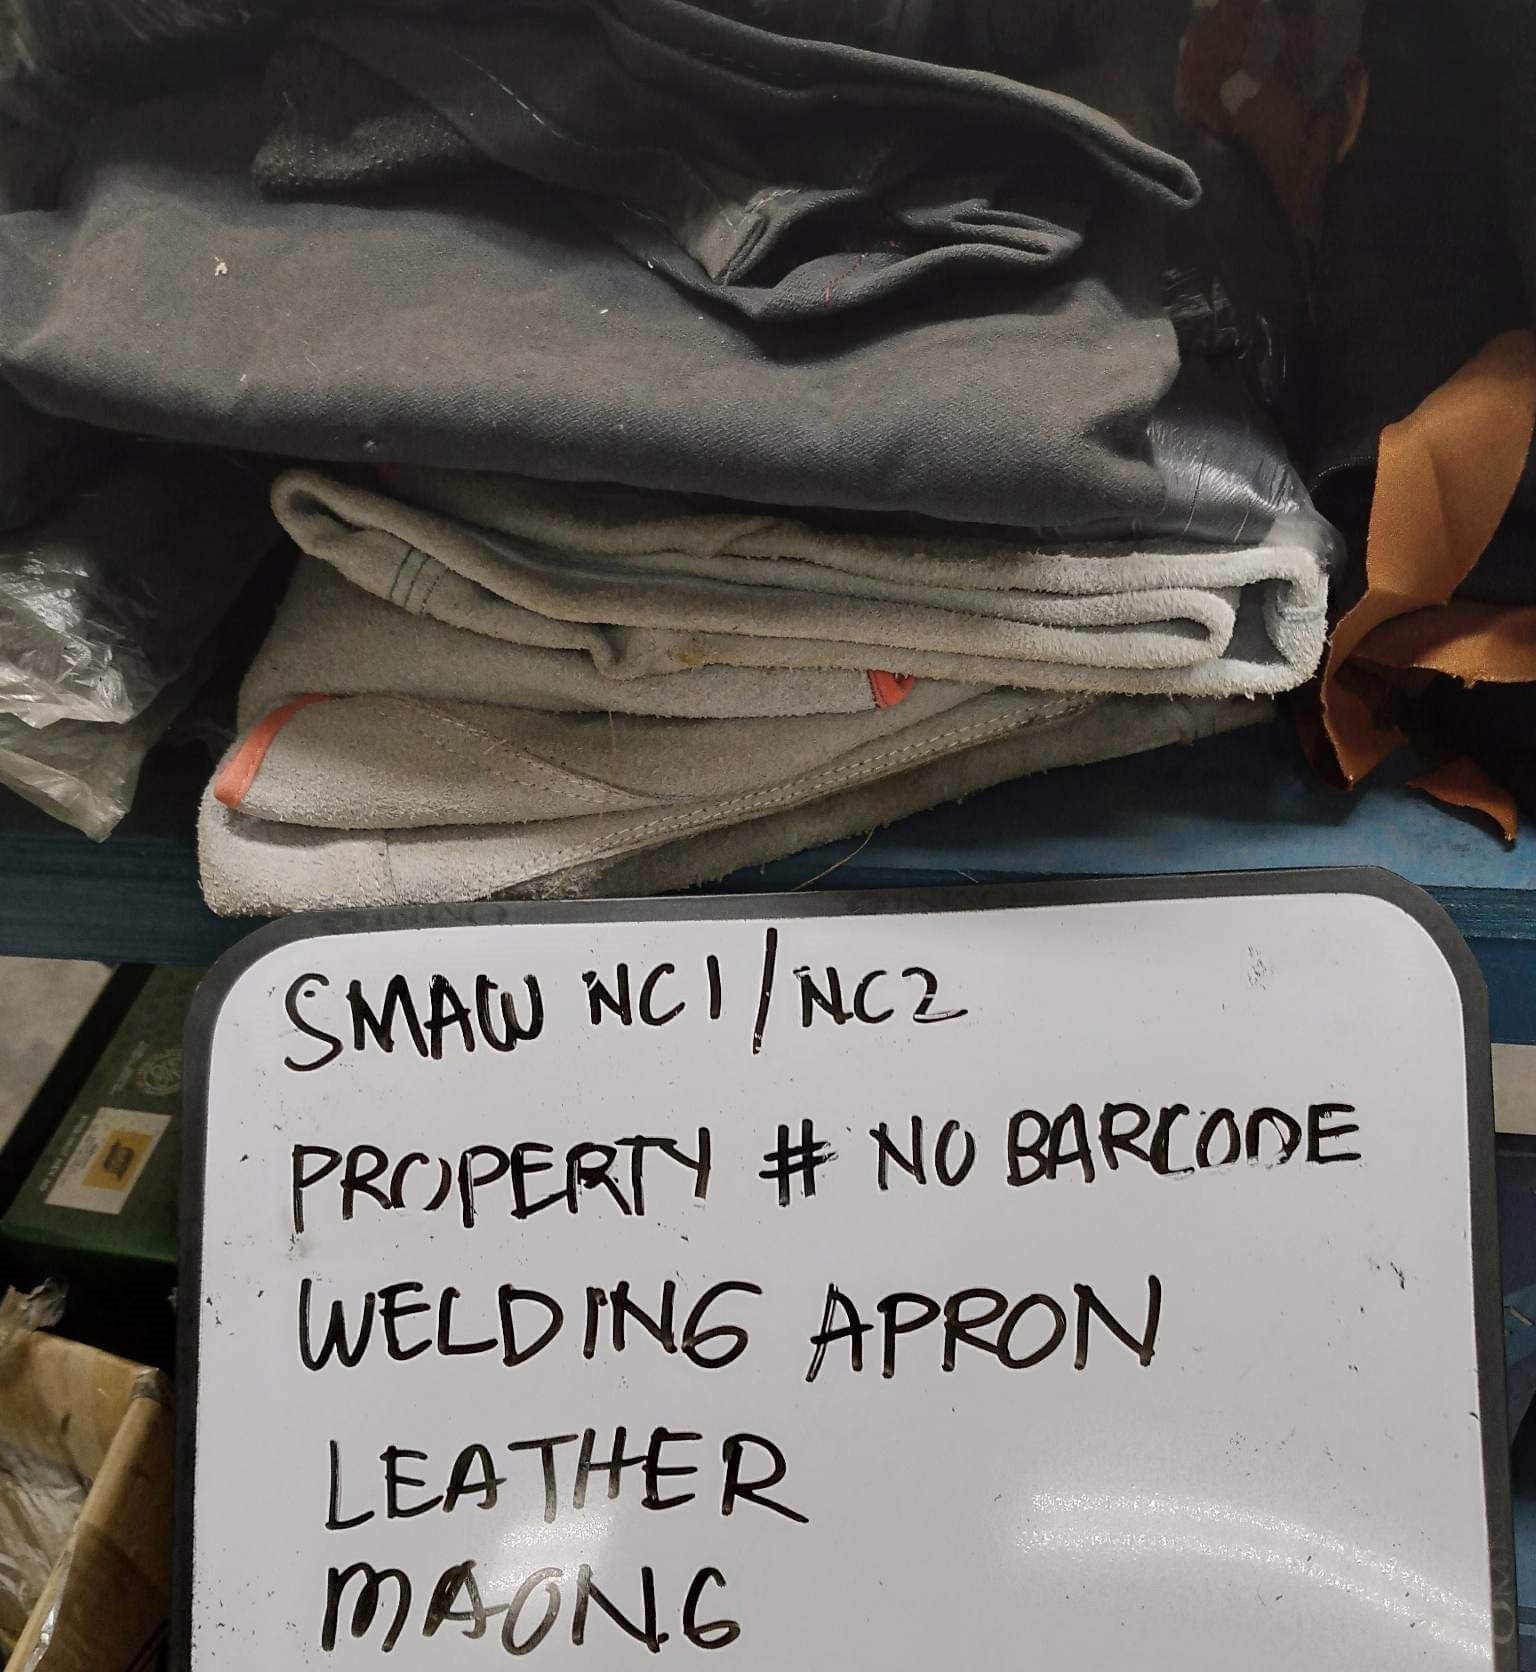 SMAW NC1/NC2
PROPERTY # NO BARCODE
WELDING APRON
LEATHER
MAONG